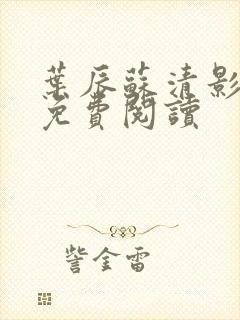 葉辰蘇清影
免費閱讀
訾金雷